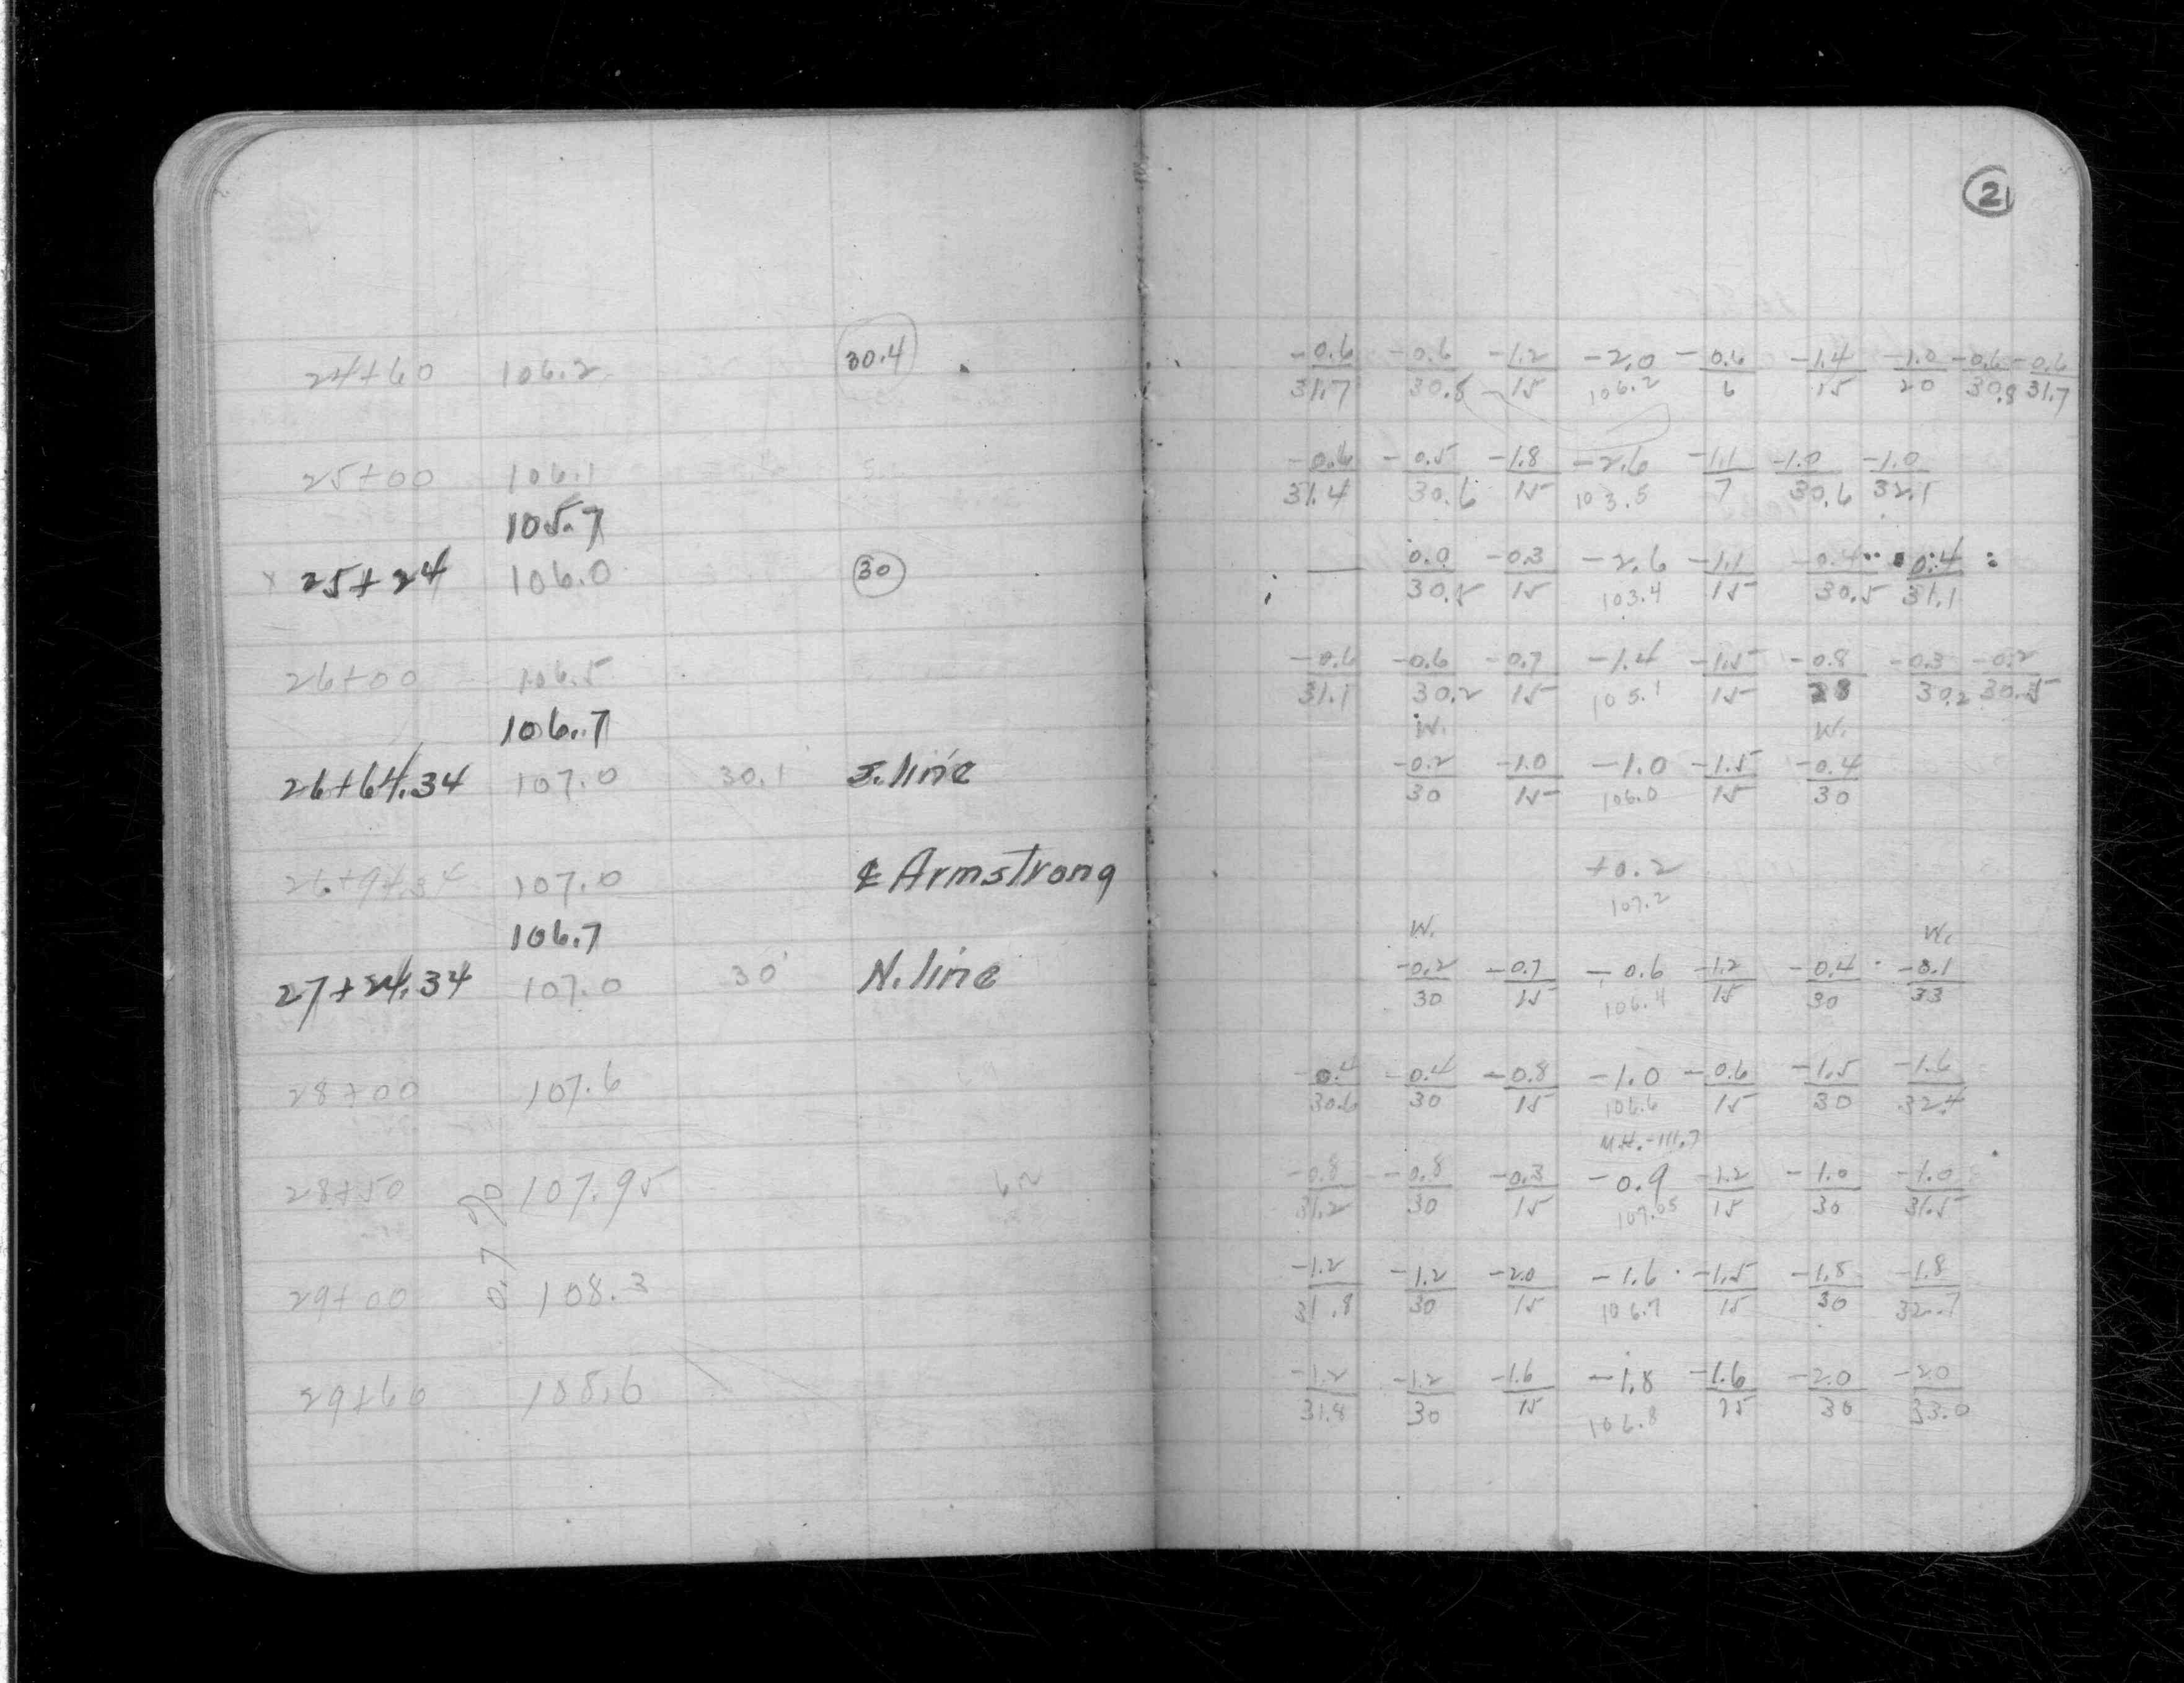 2
24+60 106.2 30.4
25+00 106.1
105.7
x 25+24 106.0 30
26+00 106.5
106.7
26+64.34 107.0 30.1 S. line
26+94.34 107.0 ℄ Armstrong
106.7
27+24.34 107.0 30' N. line
28+00 107.6
28+50 107.95
0.7 %
29+00 108.3
29+60 108.6
-0.6 -0.6 -1.2 -2.0 -0.6 -1.4 -1.0 -0.6 -0.6
31.7 30.8 15 106.2 6 15 20 30.8 31.7
-0.6 -0.5 -1.8 -2.6 -1.1 -1.0 -1.0
31.4 30.6 15 103.5 7 30.6 32.1
0.0 -0.3 -2.6 -1.1 -0.4 0.4
30.5 15 103.4 15 30.5 31.1
-0.6 -0.6 -0.7 -1.4 -1.5 -0.8 -0.3 -0.2
31.1 30.2 15 105.1 15 28 30.2 30.5
W. W.
-0.2 -1.0 -1.0 -1.5 -0.4
30 15 106.0 15 30
+0.2
107.2
W. W.
-0.2 -0.7 -0.6 -1.2 -0.4 -0.1
30 15 106.4 15 30 33
-0.4 -0.4 -0.8 -1.0 -0.6 -1.5 -1.6
30.6 30 15 106.6 15 30 32.4
M.H.-111.7
-0.8 -0.8 -0.3 -0.9 -1.2 -1.0 -1.0
31.2 30 15 107.05 15 30 31.5
-1.2 -1.2 -2.0 -1.6 -1.5 -1.8 -1.8
31.8 30 15 106.7 15 30 32.7
-1.2 -1.2 -1.6 -1.8 -1.6 -2.0 -2.0
31.8 30 15 106.8 15 30 33.0